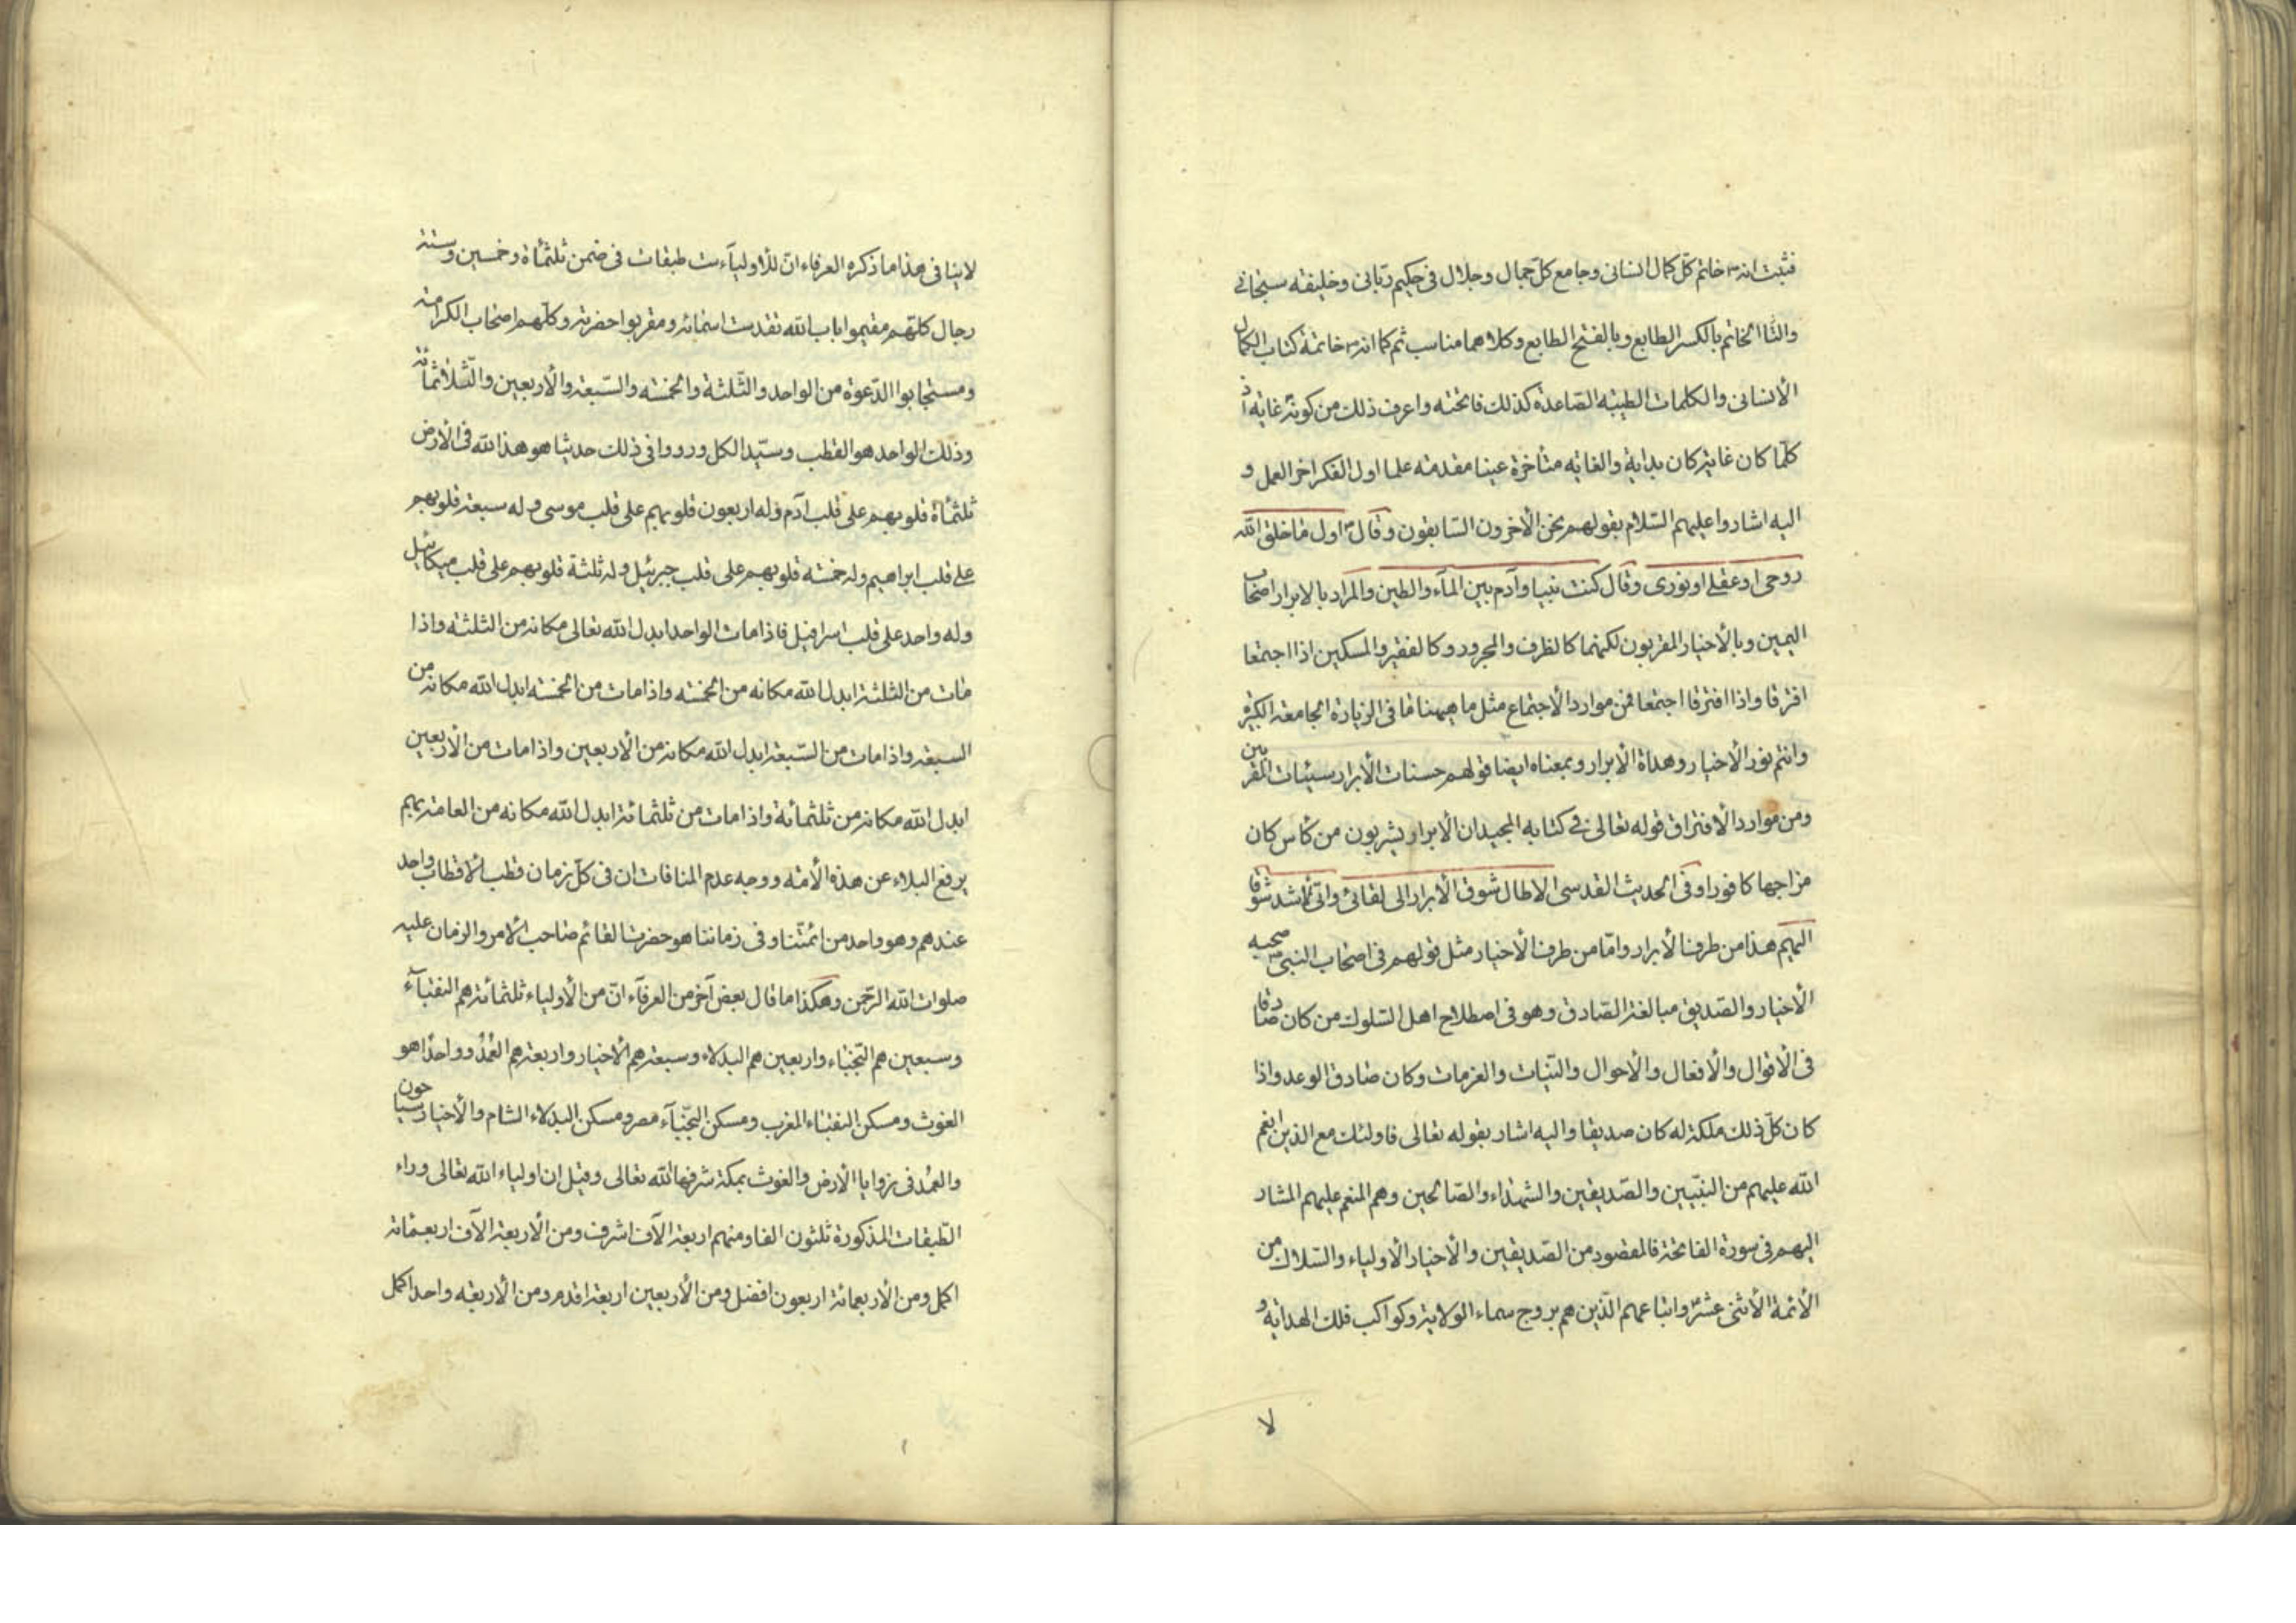 فثبت انه ص خاتم كل كمال انسانى وجامع كل جمال وجلال فى حكيم ربانى وخليفة سبحانى
والثا الخاتم بالكسر الطابع وبالفتح الطابع وكلاهما مناسب ثم كما انه ص خاتمة كتاب الكمال
الأنسانى والكلمات الطيبة الصاعدة كذلك فاتحته واعرف ذلك من كونه غاية اذ
كلما كان غاية كان بداية والغاية متأخرة عينا مقدمة علما اول الفكر اخر العمل و
اليه اشاروا عليهم السلام بقولهم نحن الأخرون السابقون وقال اول ما خلق الله
روحى او عقلى او نورى وقال كنت نبيا وآدم بين المآء والطين والمراد بالابرار اصحاب
اليمين وبالأخيار المقربون لكنهما كالظرف والمجرور وكالفقير والمسكين اذا اجتمعا
افترقا واذا افترقا اجتمعا فمن موارد الأجتماع مثل ما هيهنا ما فى الزيارة الجامعة الكبيرة
وانتم نور الأخيار وهداة الأبرار وبمعناه ايضا قولهم حسنات الأبرار سيئات المقربين
ومن موارد الأفتراق قوله تعالى فى كتابه المجيد ان الابرار يشربون من كأس كان
مزاجها كافورا وفى الحديث القدسى الا طال شوق الأبرار الى لقائى وانى لاشد شوقا
اليهم هذا من طرف الأبرار واما من طرف الأخيار مثل قولهم فى اصحاب النبى ص صحبه
الأخيار والصديق مبالغة الصادق وهو فى اصطلاح اهل السلوك من كان صادقا
فى الأقوال والأفعال والأحوال والنيات والعزمات وكان صادق الوعد واذا
كان كل ذلك ملكة له كان صديقا واليه اشار بقوله تعالى فاولئك مع الذين انعم
الله عليهم من النبيين والصديقين والشهداء والصالحين وهم المنعم عليهم المشار
اليهم فى سورة الفاتحة فالمقصود من الصديقين والأخيار الأولياء والسلاك من
الأئمة الأثنى عشر واتباعهم الذين هم بروج سماء الولاية وكواكب فلك الهداية و
لا
لاينافى هذا ما ذكره العرفاء ان للأوليآء ست طبقات فى ضمن ثلثمأة وخمسين وستة
رجال كلهم مقيموا باب الله تقدست اسمائه ومقربوا حضرته وكلهم اصحاب الكرامة
ومستجابوا الدعوة من الواحد والثلثة والخمسه والسبعة والأربعين والثلاثمائة
وذلك الواحد هو القطب وسيد الكل ورووا فى ذلك حديثا هو هذا لله فى الأرض
ثلثمأة قلوبهم على قلب آدم وله اربعون قلوبهم على قلب موسى وله سبعة قلوبهم
على قلب ابراهيم وله خمسه قلوبهم على قلب جبرئيل وله ثلثة قلوبهم على قلب ميكائيل
وله واحد على قلب اسرافيل فاذا مات الواحد ابدل الله تعالى مكانه من الثلثه واذا
مات من الثلثة ابدل الله مكانه من الخمسه واذا مات من الخمسه ابدل الله مكانه من
السبعة واذا مات من السبعة ابدل الله مكانه من الأربعين واذا مات من الأربعين
ابدل الله مكانه من ثلثمأئة واذا مات من ثلثمائة ابدل الله مكانه من العامة بهم
يرفع البلاء عن هذه الأمة ووجه عدم المنافات ان فى كل زمان قطب الأقطاب واحد
عندهم وهو واحد من ائمتنا وفى زماننا هو حضرت القائم صاحب الأمر والزمان عليه
صلوات الله الرحمن وهكذا ما قال بعض آخر من العرفآء ان من الأولياء ثلثمائة هم النقبآء
وسبعين هم النجباء واربعين هم البدلاء وسبعة هم الأخيار واربعة هم العُمُد وواحدا هو
الغوث ومسكن النقباء المغرب ومسكن النجبآء مصر ومسكن البدلاء الشام والأخيار سياحون
والعمد فى زوايا الأرض والغوث بمكة شرفها الله تعالى وقيل ان اولياء الله تعالى وراء
الطبقات المذكورة ثلثون الفا ومنهم اربعة الآف اشرف ومن الأربعة الآف اربعمائة
اكمل ومن الأربعمائة اربعون افضل ومن الأربعين اربعة اقدم ومن الأربعه واحد اكمل